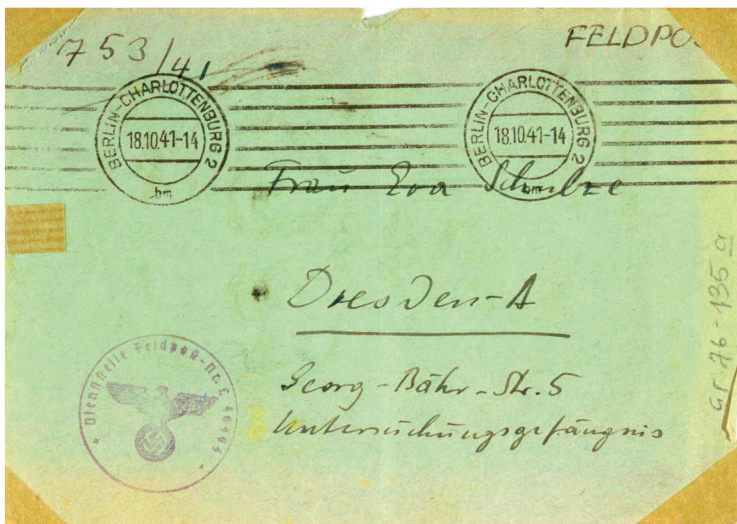 753/41
FELDPOS
BERLIN-CHARLOTTENBURG 2
18.10.41-14
bm
BERLIN-CHARLOTTENBURG 2
18.10.41-14
bm
Frau Eva Schulze
Dresden-A
Georg-Bähr-Str. 5
Untersuchungsgefängnis
Dienststelle Feldpost-Nr. L
Gr A6-135a